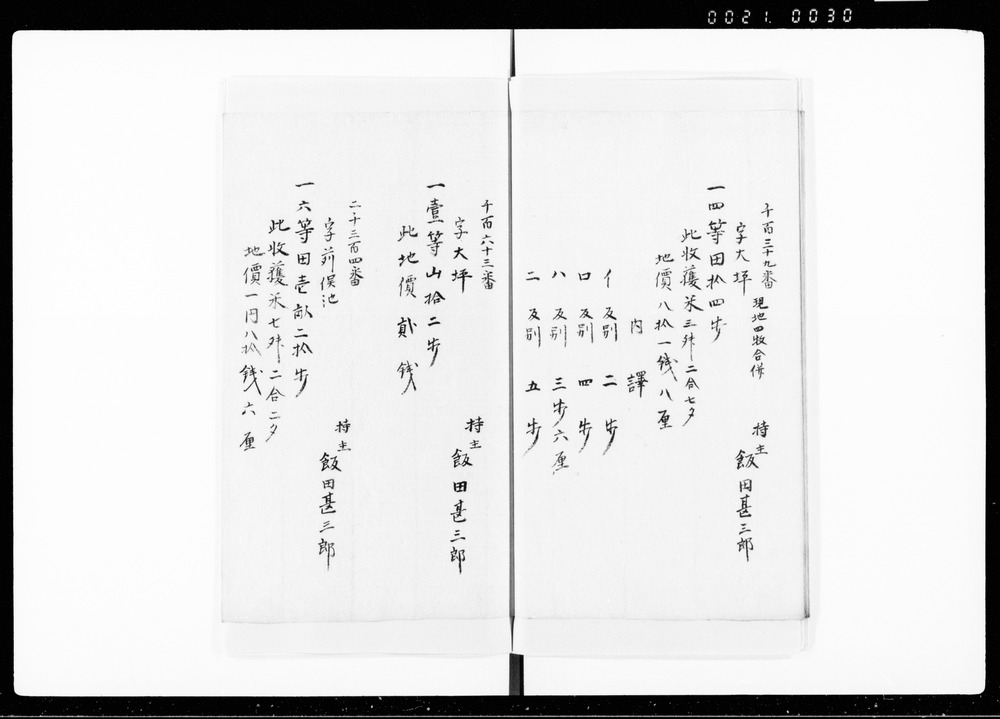 0021. 0030
千百三十九番 現地四牧合併
字大坪
持主 飯田甚三郎
一四等田拾四歩
此收獲米三舛二合七夕
地價八拾一錢八厘
内譯
イ反別 二歩
ロ反別 四歩
ハ反別 三歩六厘
ニ反別 五歩
千百六十三番
字大坪
持主 飯田甚三郎
一壹等山拾二歩
此地價貳錢
二千三百四番
字前俣池
持主 飯田甚三郎
一六等田壱畝二拾歩
此收獲米七舛二合二夕
地價一円八拾錢六厘